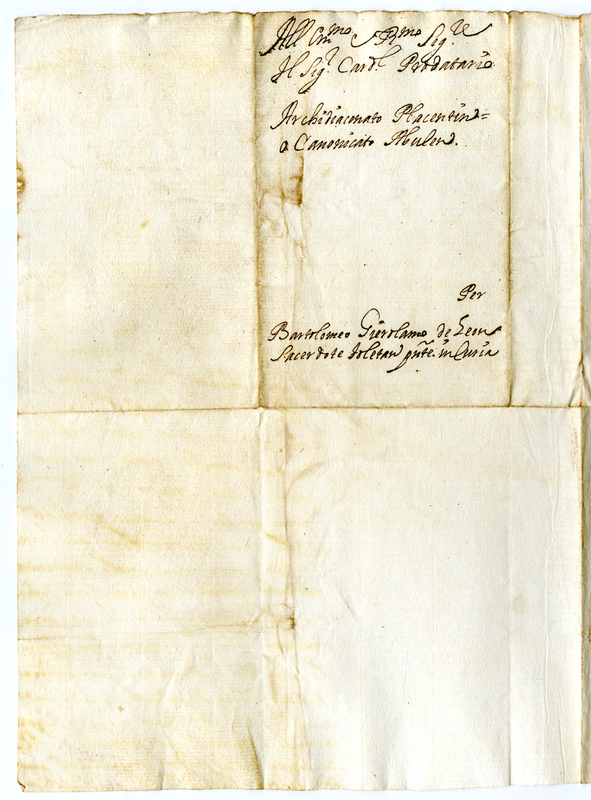 All Em.mo e R.mo Sig.re
Il Sig.r Card.l Prodatario
Archidiaconato Placentin.
o Canonicato Abulen.
Per
Bartolomeo Gierolamo de Leon
Sacerdote toletan pñte. in Curia